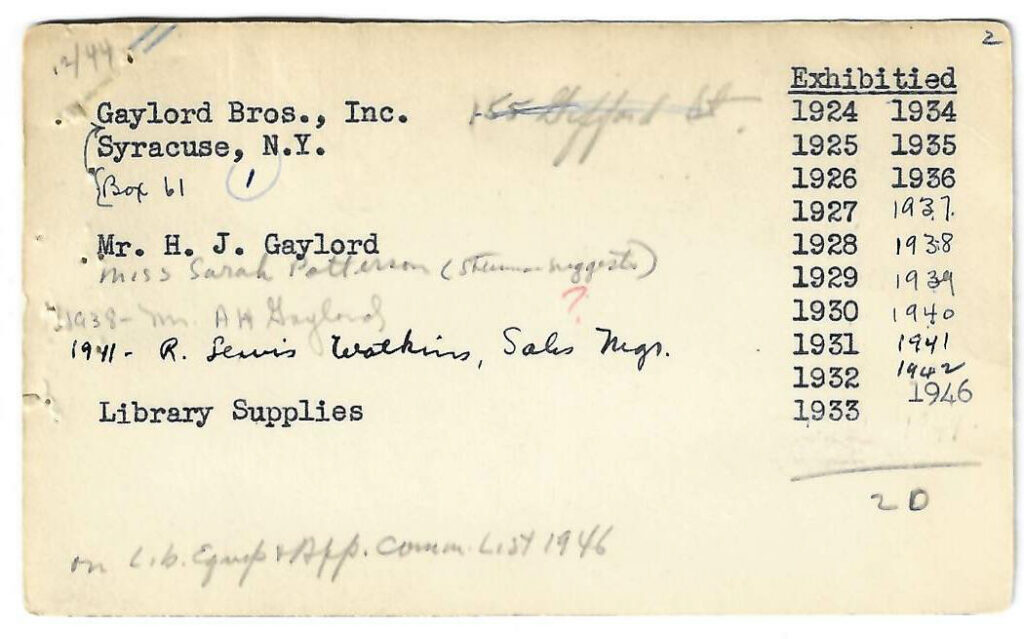 12/44
2
Exhibitied
Gaylord Bros., Inc. 155 Gifford St.
Syracuse, N.Y.
Box 61 1
Mr. H. J. Gaylord
Miss Sarah Patterson (Sherman suggests)
?
1938 - Mr. A H Gaylord
1941 - R. Lewis Watkins, Sales Mgr.
Library Supplies
1924 1934
1925 1935
1926 1936
1927 1937
1928 1938
1929 1939
1930 1940
1931 1941
1932 1942
1933 1946
20
on Lib. Equip & App. Comm. List 1946